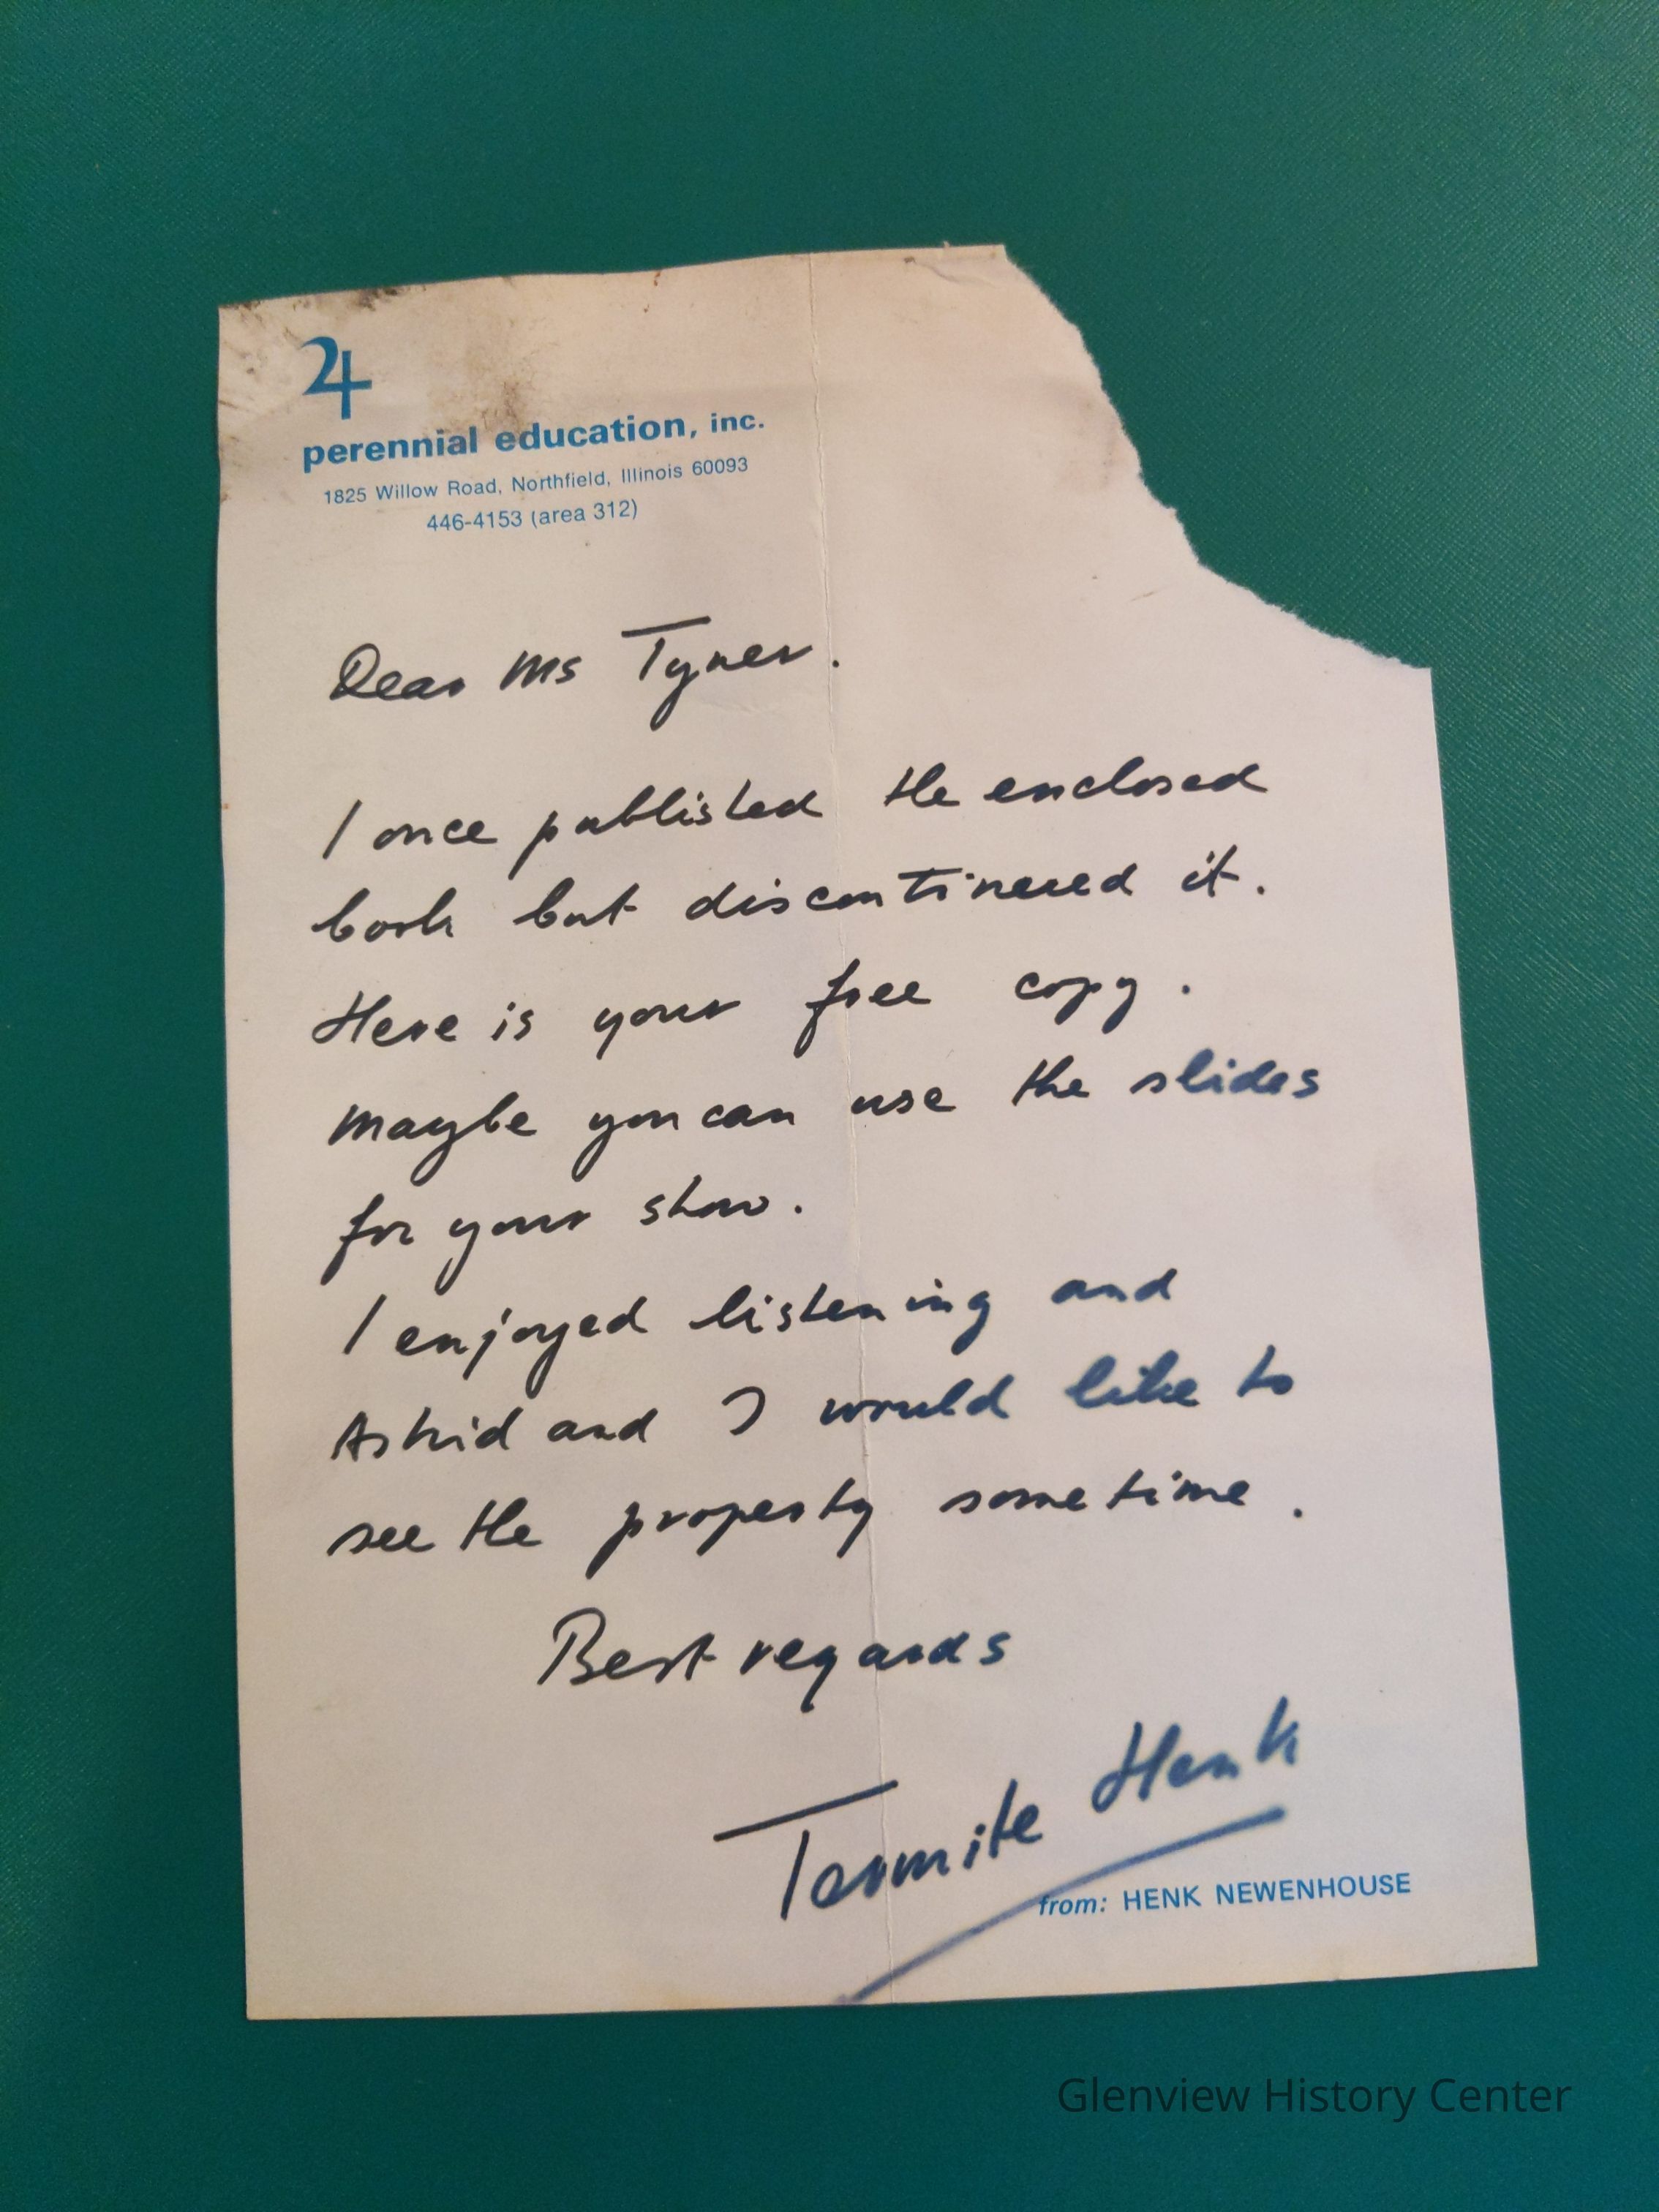 perennial education, inc.
1825 Willow Road, Northfield, Illinois 60093
446-4153 (area 312)
Dear Ms Tyner.
I once published the enclosed
book but discontinued it.
Here is your free copy.
Maybe you can use the slides
for your show.
I enjoyed listening and
Astrid and I would like to
see the property sometime.
Best regards
Termite Henk
from: HENK NEWENHOUSE
Glenview History Center